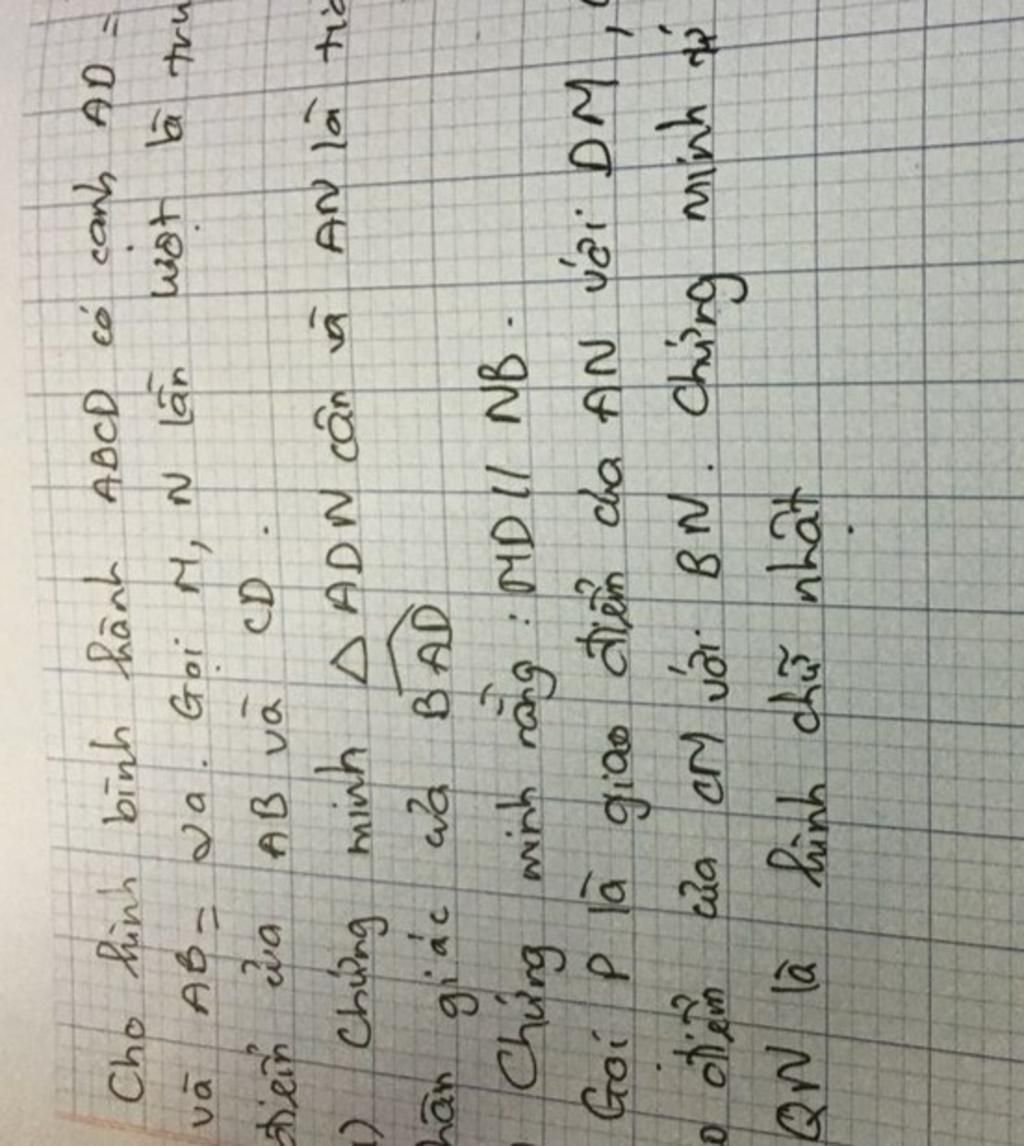 Cho hình bình hành ABCD có cạnh AD =
và AB = 2a. Gọi M, N lần lượt là
điểm của AB và CD.
Chứng minh △ ADN cân và AN là
giác của BAD
Chứng minh rằng: MD // NB.
Gọi P là giao điểm của AN với DM,
điểm của CM với BN. Chứng minh tứ
QN là hình chữ nhật